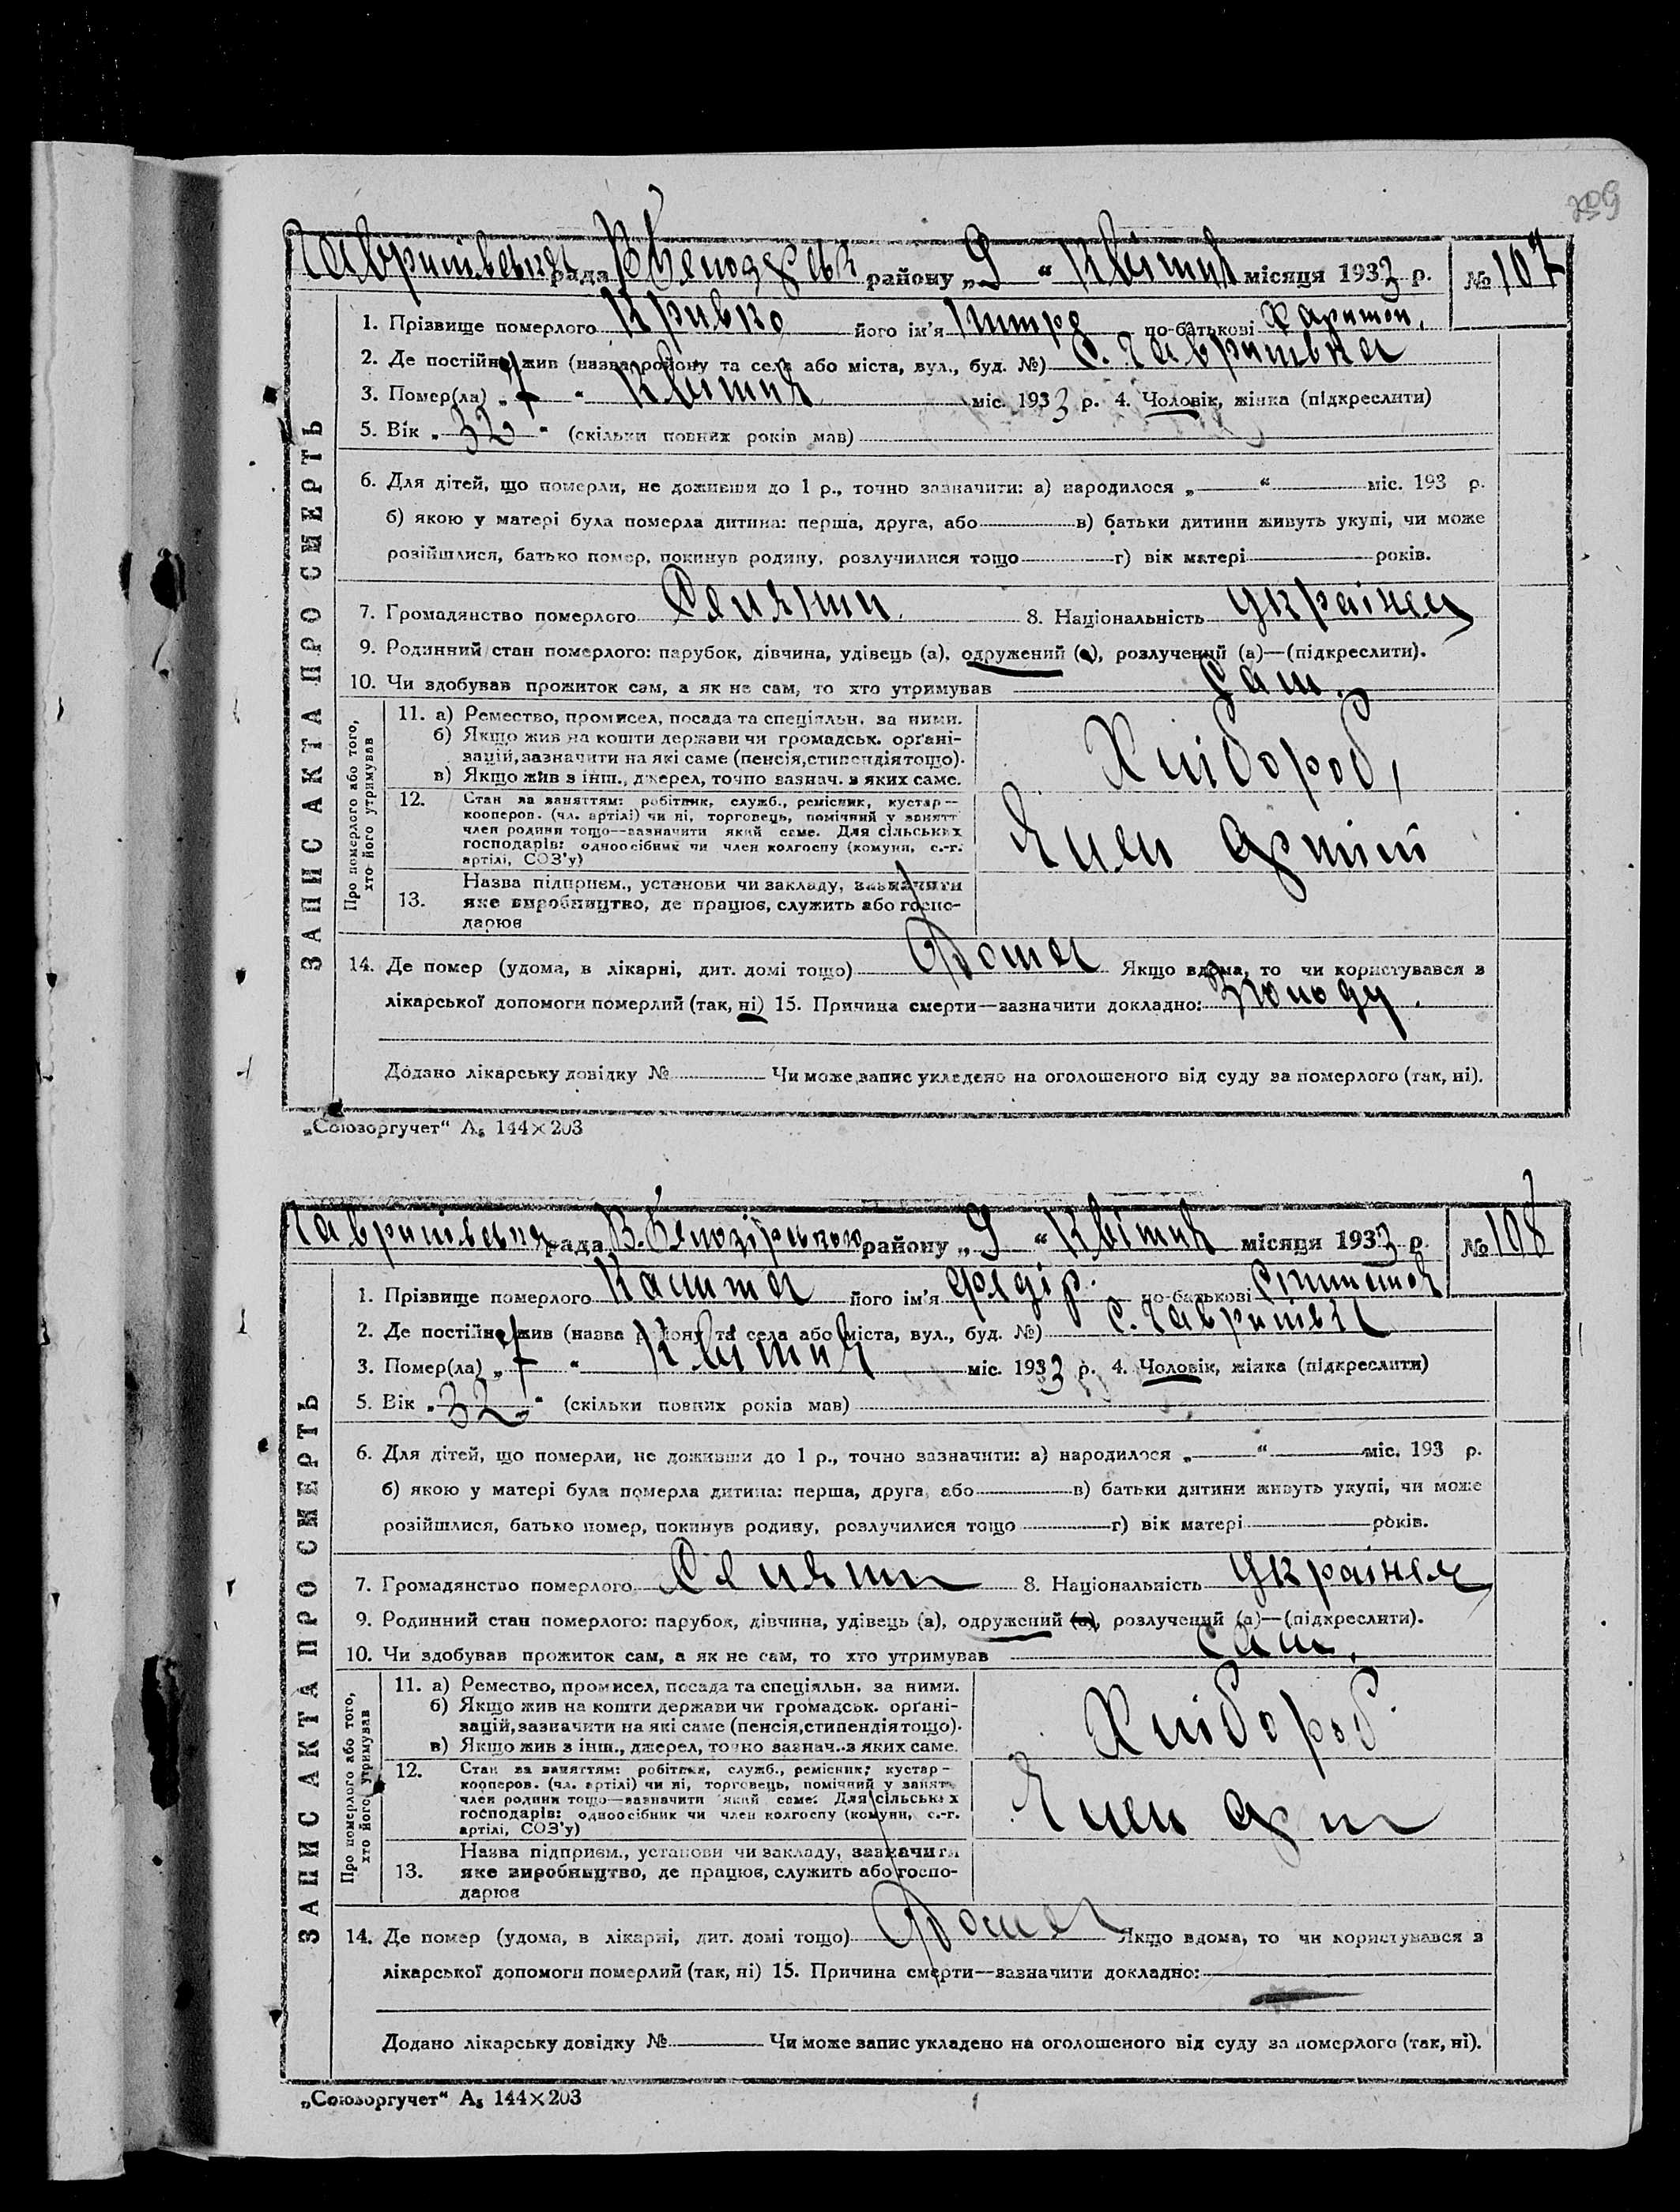 209
Гавришівська рада району „9“ Квітня місяця 1933 р. № 107
ЗАПИС АКТА ПРО СМЕРТЬ
1. Прізвище померлого Кривко його ім'я по-батькові Харитон.
2. Де постійно жив (назва району та села або міста, вул., буд. №) с. Гавришівка
3. Помер(ла) „7“ Квітня міс. 1933 р. 4. Чоловік, жінка (підкреслити)
5. Вік „32“ (скільки повних років мав)
6. Для дітей, що померли, не доживши до 1 р., точно зазначити: а) народилося „ “ міс. 193 р.
б) якою у матері була померла дитина: перша, друга, або в) батьки дитини живуть укупі, чи може
розійшлися, батько помер, покинув родину, розлучилися тощо г) вік матері років.
7. Громадянство померлого Селянин. 8. Національність Українец
9. Родинний стан померлого: парубок, дівчина, удівець (а), одружений (а), розлучений (а)—(підкреслити).
10. Чи здобував прожиток сам, а як не сам, то хто утримував Сам.
Про померлого або того, хто його утримував
11. а) Ремество, промисел, посада та спеціяльн. за ними.
б) Якщо жив на кошти держави чи громадськ. органі-
зацій, зазначити на які саме (пенсія, стипендія тощо).
в) Якщо жив з інш., джерел, точно зазнач. з яких саме.
Хлібороб,
12. Стан за заняттям: робітник, служб., ремісник, кустар—
кооперов. (чл. артілі) чи ні, торговець, помічний у занятт
член родини тощо—зазначити який саме. Для сільських
господарів: одноосібник чи член колгоспу (комуни, с.-г.
артілі, СОЗ'у)
Член Артілі
13. Назва підприєм., установи чи закладу, зазначити
яке виробництво, де працює, служить або госпо-
дарює
14. Де помер (удома, в лікарні, дит. домі тощо) Дома Якщо вдома, то чи користувався з
лікарської допомоги померлий (так, ні) 15. Причина смерти—зазначити докладно: Зголоду.
Додано лікарську довідку № Чи може запис укладено на оголошеного від суду за померлого (так, ні).
„Союзоргучет“ А₅ 144×203
Гавришівська рада В. Білозірського району „9“ Квітня місяця 1933 р. № 108
ЗАПИС АКТА ПРО СМЕРТЬ
1. Прізвище померлого Калита його ім'я Федір. по-батькові
2. Де постійно жив (назва району та села або міста, вул., буд. №) с. Гавришівка
3. Помер(ла) „7“ Квітня міс. 1933 р. 4. Чоловік, жінка (підкреслити)
5. Вік „32“ (скільки повних років мав)
6. Для дітей, що померли, не доживши до 1 р., точно зазначити: а) народилося „ “ міс. 193 р.
б) якою у матері була померла дитина: перша, друга, або в) батьки дитини живуть укупі, чи може
розійшлися, батько помер, покинув родину, розлучилися тощо г) вік матері років.
7. Громадянство померлого Селянин 8. Національність Українец
9. Родинний стан померлого: парубок, дівчина, удівець (а), одружений (а), розлучений (а)—(підкреслити).
10. Чи здобував прожиток сам, а як не сам, то хто утримував сам.
Про померлого або того, хто його утримував
11. а) Ремество, промисел, посада та спеціяльн. за ними.
б) Якщо жив на кошти держави чи громадськ. органі-
зацій, зазначити на які саме (пенсія, стипендія тощо).
в) Якщо жив з інш., джерел, точно зазнач. з яких саме.
Хлібороб.
12. Стан за заняттям: робітник, служб., ремісник, кустар—
кооперов. (чл. артілі) чи ні, торговець, помічний у занятт
член родини тощо—зазначити який саме. Для сільських
господарів: одноосібник чи член колгоспу (комуни, с.-г.
артілі, СОЗ'у)
Член
13. Назва підприєм., установи чи закладу, зазначити
яке виробництво, де працює, служить або госпо-
дарює
14. Де помер (удома, в лікарні, дит. домі тощо) Дома Якщо вдома, то чи користувався з
лікарської допомоги померлий (так, ні) 15. Причина смерти—зазначити докладно:
Додано лікарську довідку № Чи може запис укладено на оголошеного від суду за померлого (так, ні).
„Союзоргучет“ А₅ 144×203